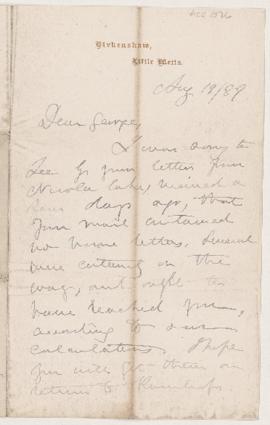 Birkenshaw,
Little Metis.
Aug 19/89
Dear George,
I was sorry to
see by your letter from
Nicola Lake, received a
few days ago, that
your mail contained
no home letters, Several
were certainly on the
way, and ought to
have reached you,
according to
calculations. I hope
you will get them on
return to Kamloops.